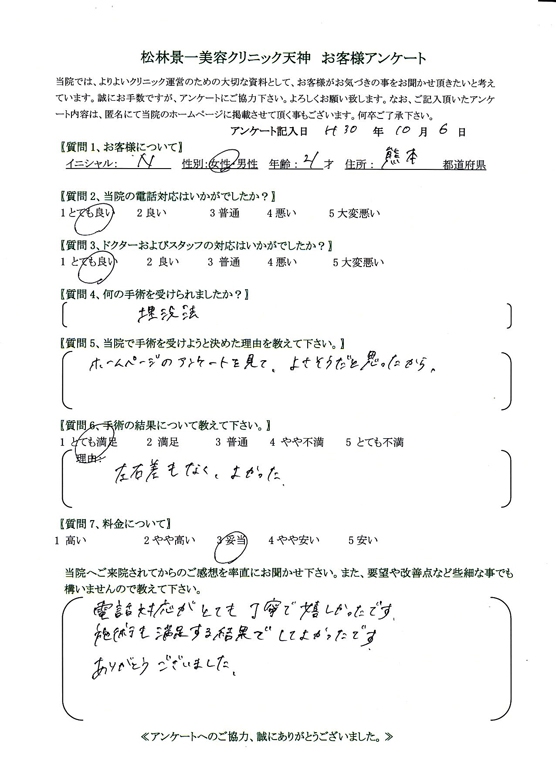 松林景一美容クリニック天神 お客様アンケート
当院では、よりよいクリニック運営のための大切な資料として、お客様がお気づきの事をお聞かせ頂きたいと考え
ています。誠にお手数ですが、アンケートにご協力下さい。よろしくお願い致します。なお、ご記入頂いたアンケ
ート内容は、匿名にて当院のホームページに掲載させて頂く事もございます。何卒ご了承下さい。
アンケート記入日 H30 年 10 月 6 日
〖質問1、お客様について〗
イニシャル: N 性別:女性・男性 年齢:21才 住所: 熊本 都道府県
〖質問2、当院の電話対応はいかがでしたか?〗
1とても良い 2良い 3普通 4悪い 5大変悪い
〖質問3、ドクターおよびスタッフの対応はいかがでしたか?〗
1 とても良い 2 良い 3 普通 4悪い 5大変悪い
〖質問4、何の手術を受けられましたか?〗
埋没法
〖質問5、当院で手術を受けようと決めた理由を教えて下さい。〗
ホームページのアンケートを見て、よさそうだと思ったから。
〖質問6、手術の結果について教えて下さい。〗
1 とても満足 2 満足 3 普通 4 やや不満 5 とても不満
理由:
左右差もなく、よかった。
〖質問7、料金について〗
1 高い 2やや高い 3妥当 4やや安い 5安い
当院へご来院されてからのご感想を率直にお聞かせ下さい。また、要望や改善点など些細な事でも
構いませんので教えて下さい。
電話対応がとても丁寧で嬉しかったです。
施術も満足する結果でしてよかったです。
ありがとうございました。
≪アンケートへのご協力、誠にありがとうございました。≫